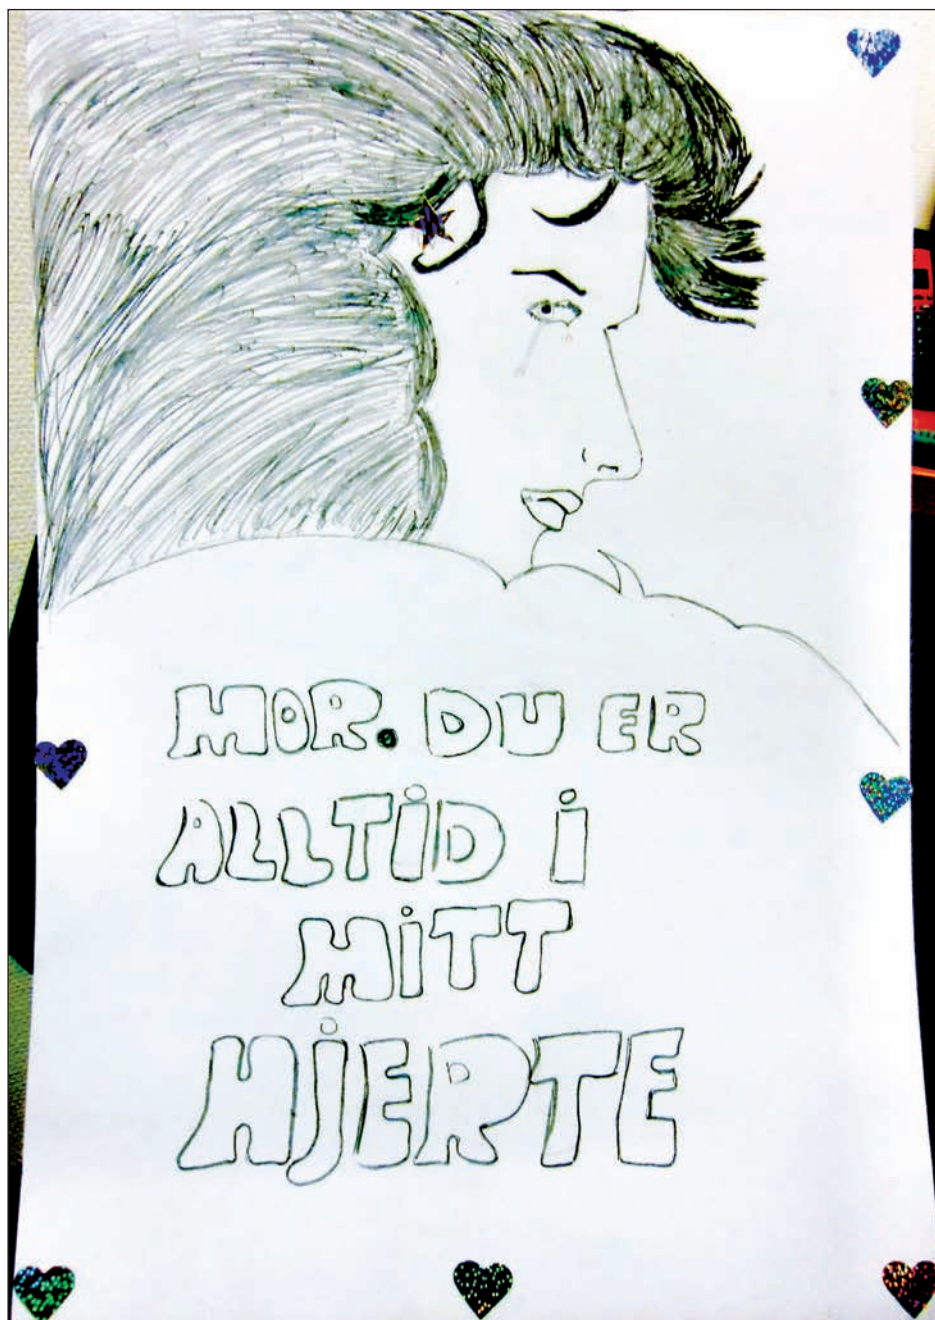 MOR. DU ER
ALLTID I
MITT
HJERTE